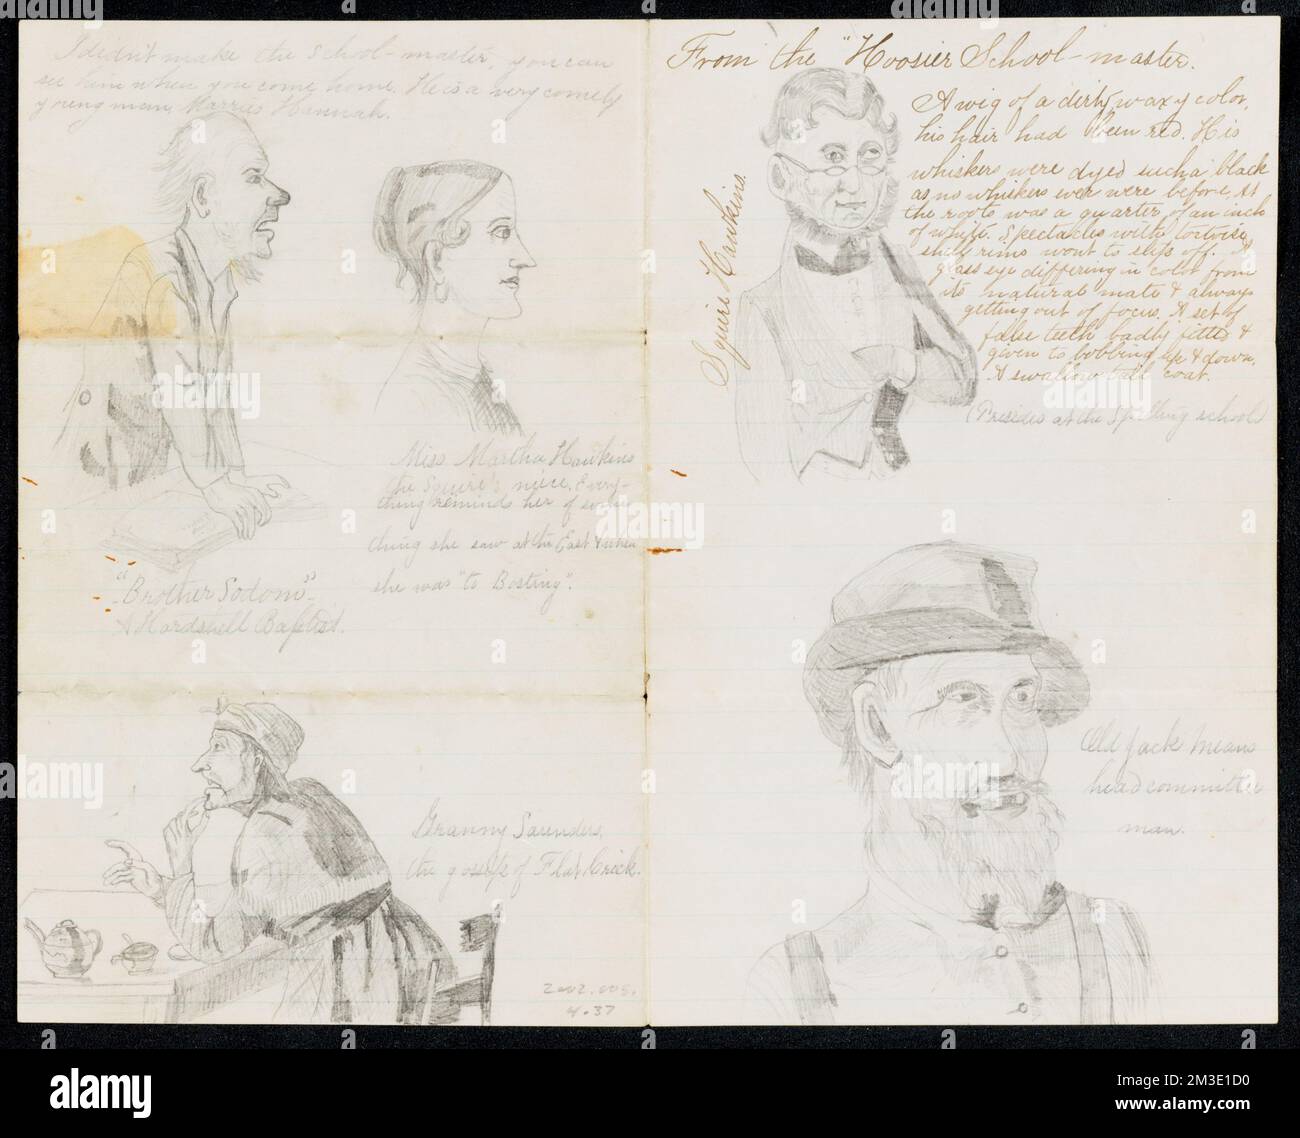 I didn't make the School-master, you can
see him when you come home. He is a very comely
young man. Marries Hannah.
"Brother Sodom"
A Hardshell Baptist.
Miss Martha Hawkins
the Squire's niece. Every-
thing reminds her of some-
thing she saw at the East & when
she was "to Bosting".
Granny Saunders,
the gossip of Flat Crick.
2002.005.
4.37
From the "Hoosier School-master.
Squire Hawkins.
A wig of a dirty, waxy color,
his hair had been red. His
whiskers were dyed such a black
as no whiskers ever were before, at
the roots was a quarter of an inch
of white. Spectacles with tortoise
shell rims wont to slip off. A
glass eye differing in color from
its natural mate & always
getting out of focus. A set of
false teeth badly fitted &
given to bobbing up & down.
A swallow tail coat.
(Presides at the Spelling school)
Old Jack Means
head committee
man.
alamy
Image ID: 2M3E1D0
www.alamy.com